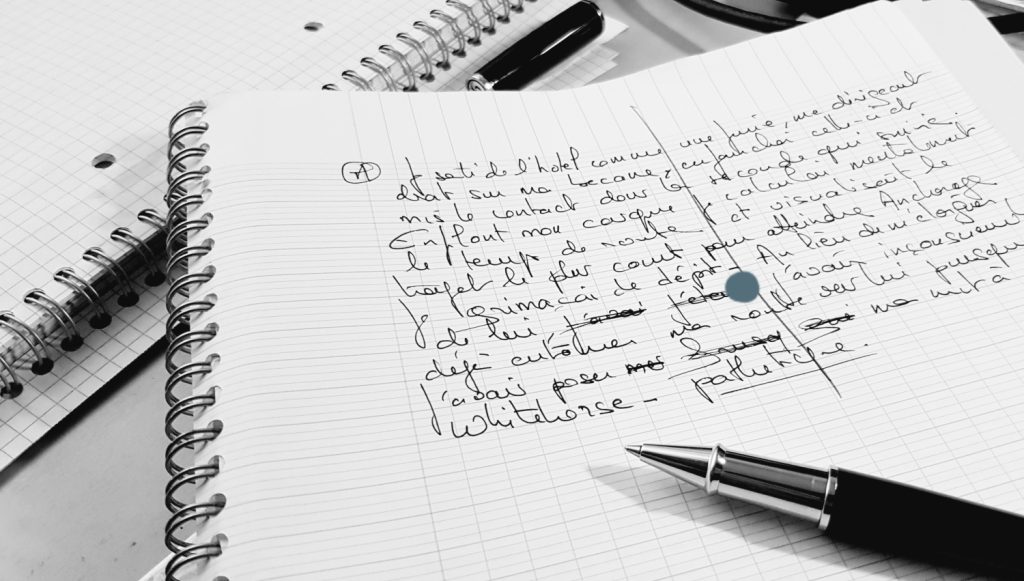 A Je sorti de l'hotel comme une furie, me dirigeant
droit sur ma becane, enfourchai celle-ci et
mis le contact dans la seconde qui suivis.
Enfilant mon casque je calculai mentalement
le temps de route et visualisait le
trajet le plus court pour atteindre Anchorage
Je grimaçai de dépit. Au lieu de m'éloigner
de lui j'avais inconsciemment
déjà entamer ma route vers lui puisque
j'avais poser mes à
Whitehorse - pathétique.